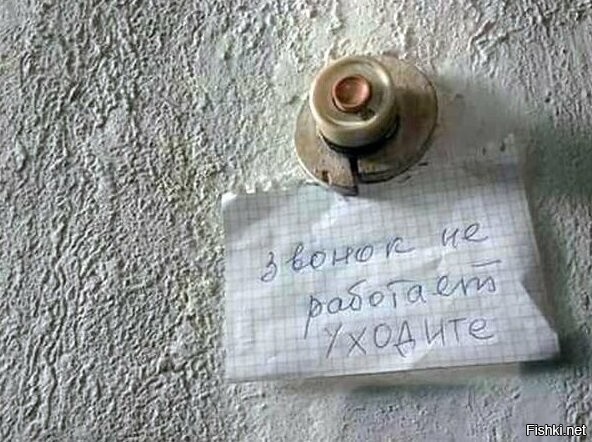 звонок не
работает
уходите
Fishki.net